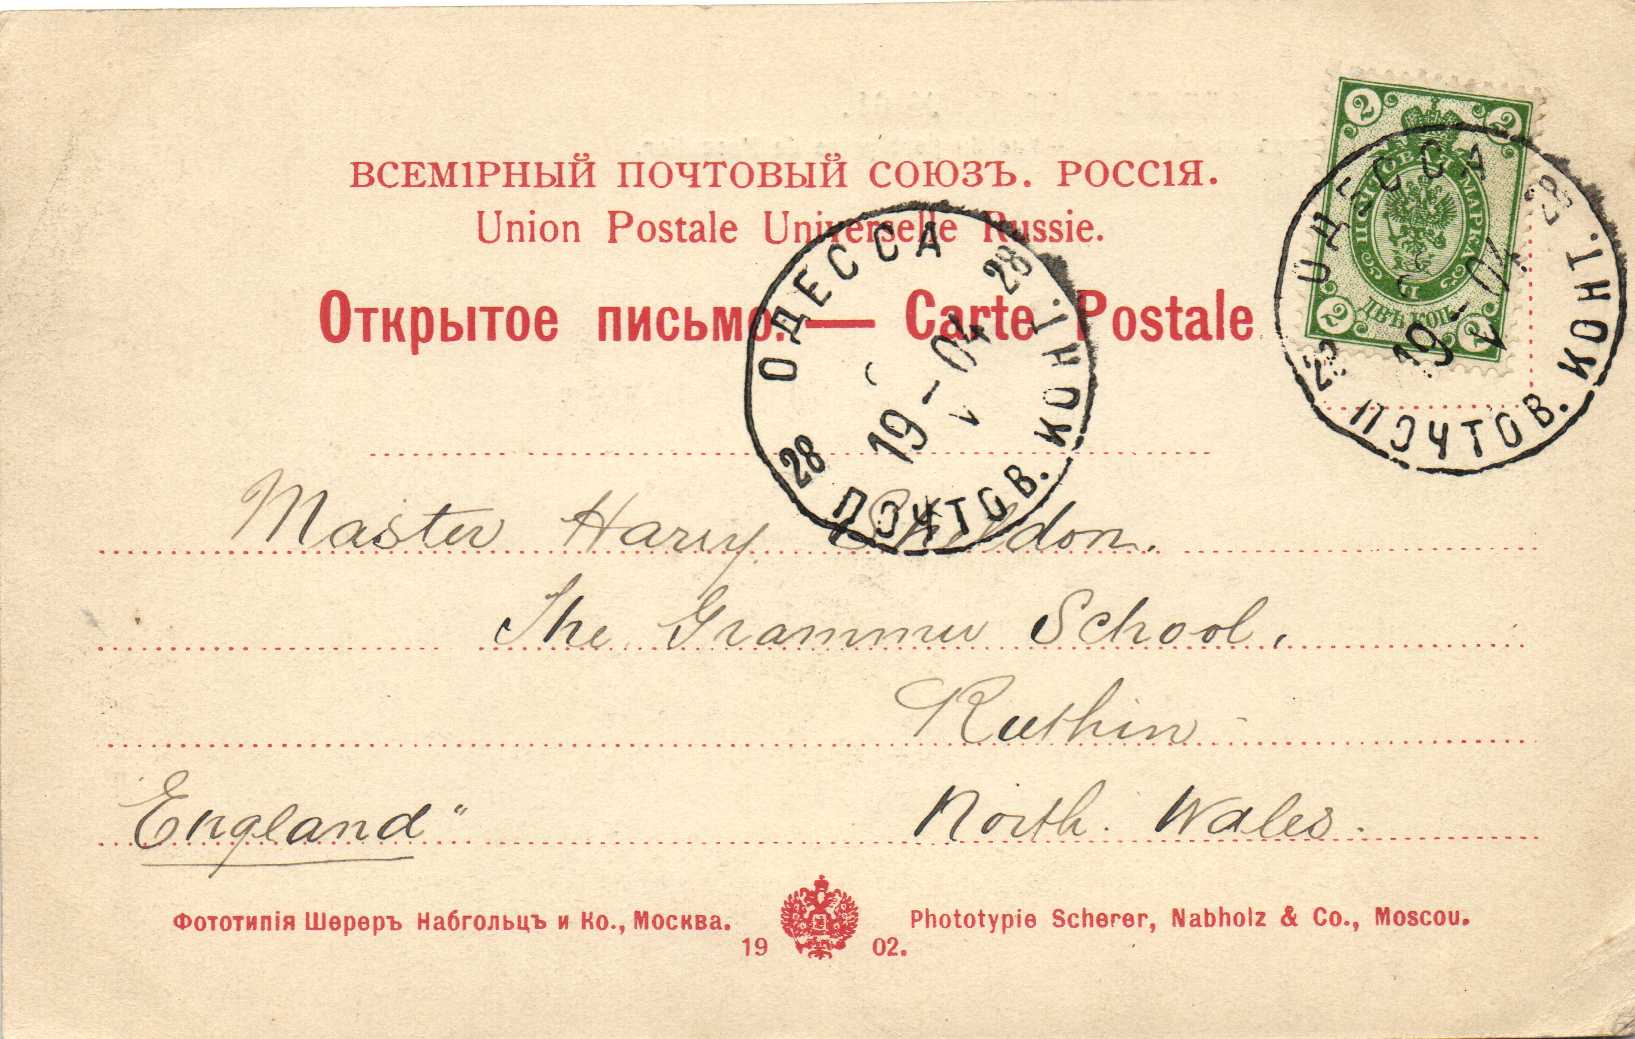 ВСЕМІРНЫЙ ПОЧТОВЫЙ СОЮЗЪ. РОССІЯ.
Union Postale Universelle Russie.
Открытое письмо. — Carte Postale
2 2
ПОЧТОВАЯ МАРКА
ДВѢ КОП.
2 2
ОДЕССА 28
19 - 04
V
28 ПОЧТОВ. КОНТ.
ОДЕССА 28
19 - 04
V
28 ПОЧТОВ. КОНТ.
Master Harry Sheldon.
The Grammer School,
Ruthin
North. Wales.
England"
Фототипія Шереръ Набгольцъ и Ко., Москва.
19 02.
Phototypie Scherer, Nabholz & Co., Moscou.